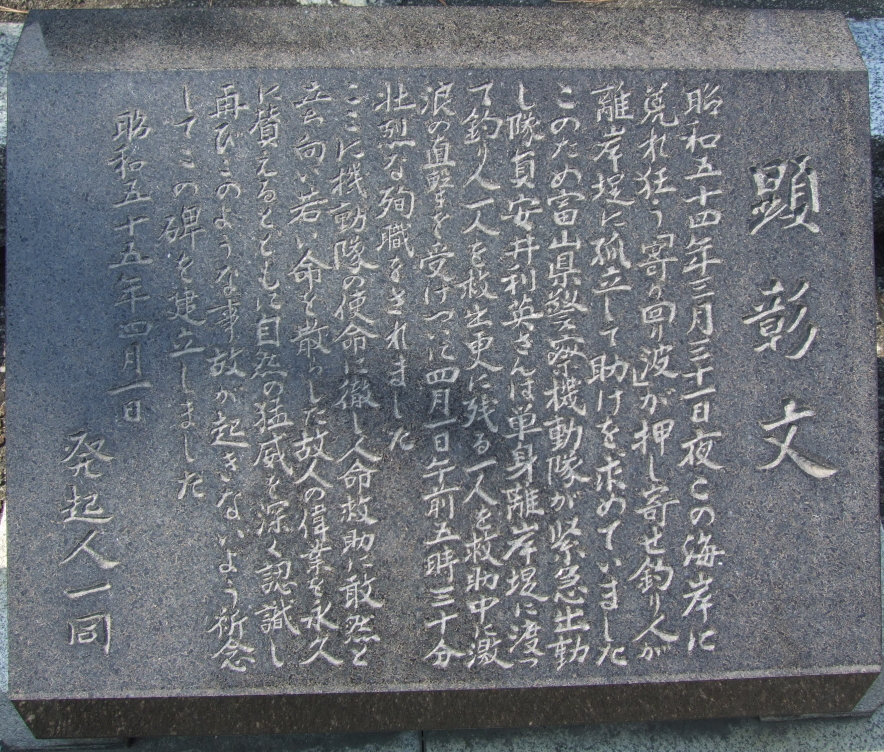 顕彰文
昭和五十四年三月三十一日夜この海岸に
荒れ狂う「寄り回り波」が押し寄せ釣り人が
離岸堤に孤立して助けを求めていました
このため富山県警察機動隊が緊急出動
し隊員安井利英さんは単身離岸堤に渡っ
て釣り人一人を救出更に残る一人を救助中に激
浪の直撃を受けついに四月一日午前五時三十分
壮烈な殉職をされました
ここに機動隊の使命に徹し人命救助に敢然と
立ち向い若い命を散らした故人の偉業を永久
に賛えるとともに自然の猛威を深く認識し
再びこのような事故が起きないよう祈念
してこの碑を建立しました
昭和五十五年四月一日
発起人一同